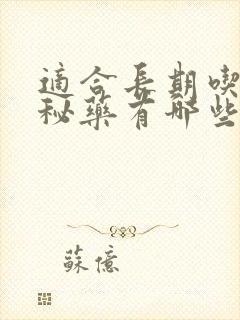 適合長期喫
秘藥有哪些
蘇億